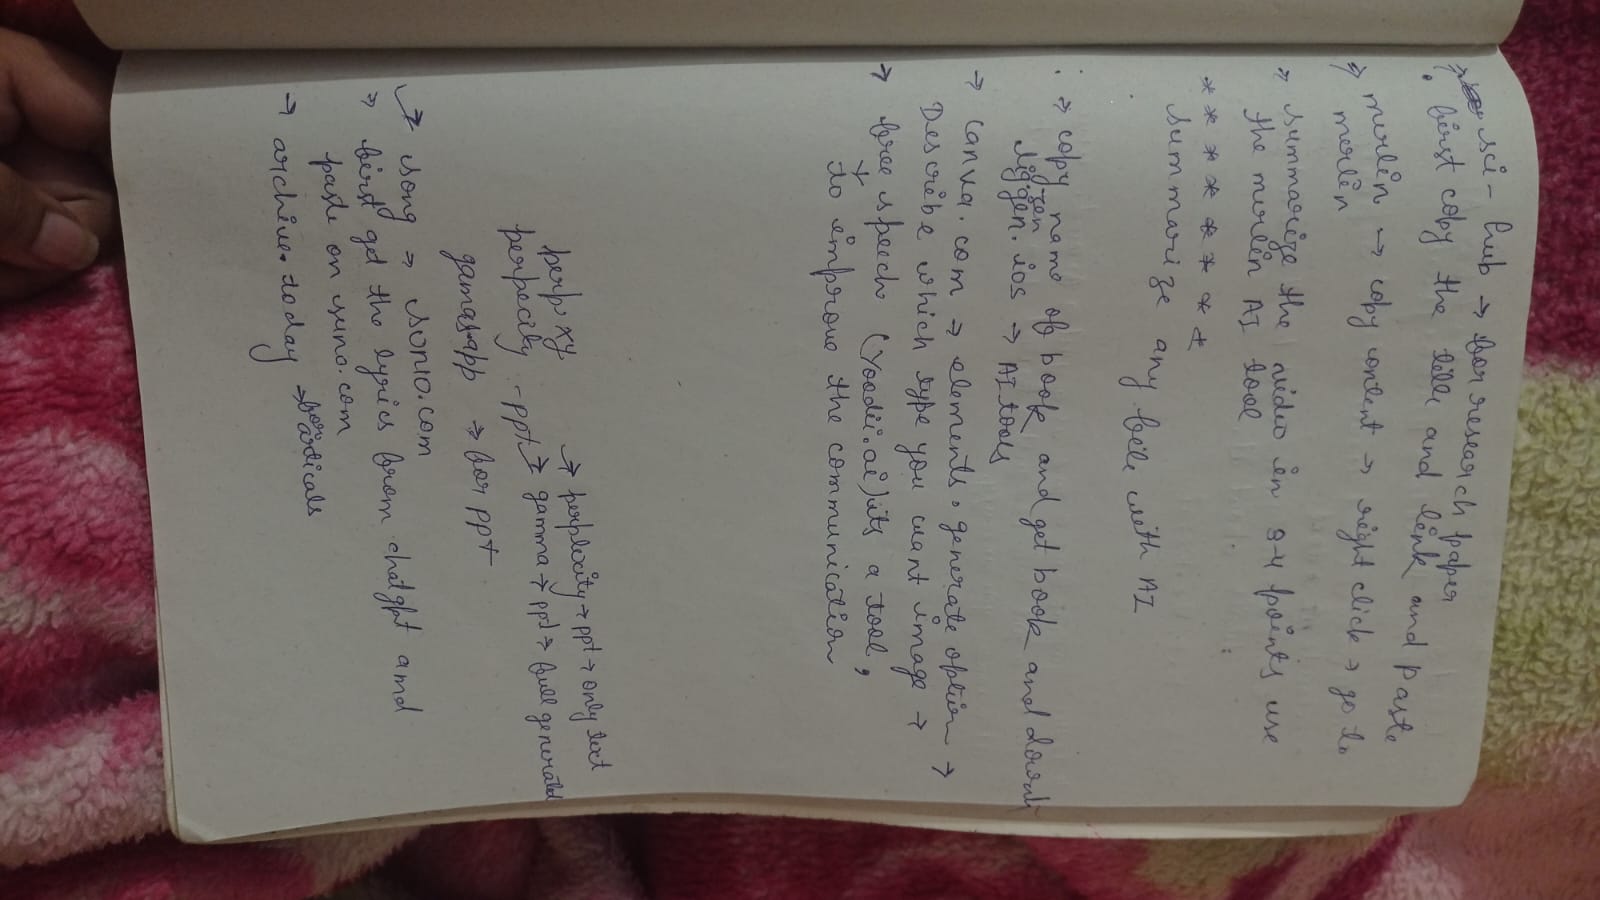 → sci-hub → for research paper
. first copy the title and link and paste
→ merlin → copy content → right click → go to
merlin
→ summarize the video in 3-4 points use
the merlin AI tool
* * * * * * * *
summarize any file with AI
: → copy name of book and get book and downl
zen
liggen.ios → AI tools
→ canva.com → elements. generate option →
Describe which type you want image →
→ free speech (Yoodii.ai) its a tool,
to improve the communication
perp xy → perplexity → ppt → only text
perpecity - ppt → gamma → ppt → full generated
gamas.app → for ppt
→ song → sono.com
→ first get the lyrics from chatgpt amd
paste on suno.com
→ archive.today → for articals